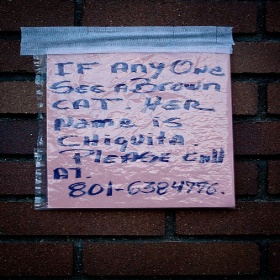 IF ANYONE
SEE A BROWN
CAT. HER
NAME IS
CHIQUITA.
PLEASE CALL
AT.
801-6384976.